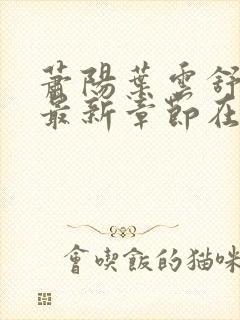 蕭陽葉雲舒
最新章節在
會喫飯的貓咪